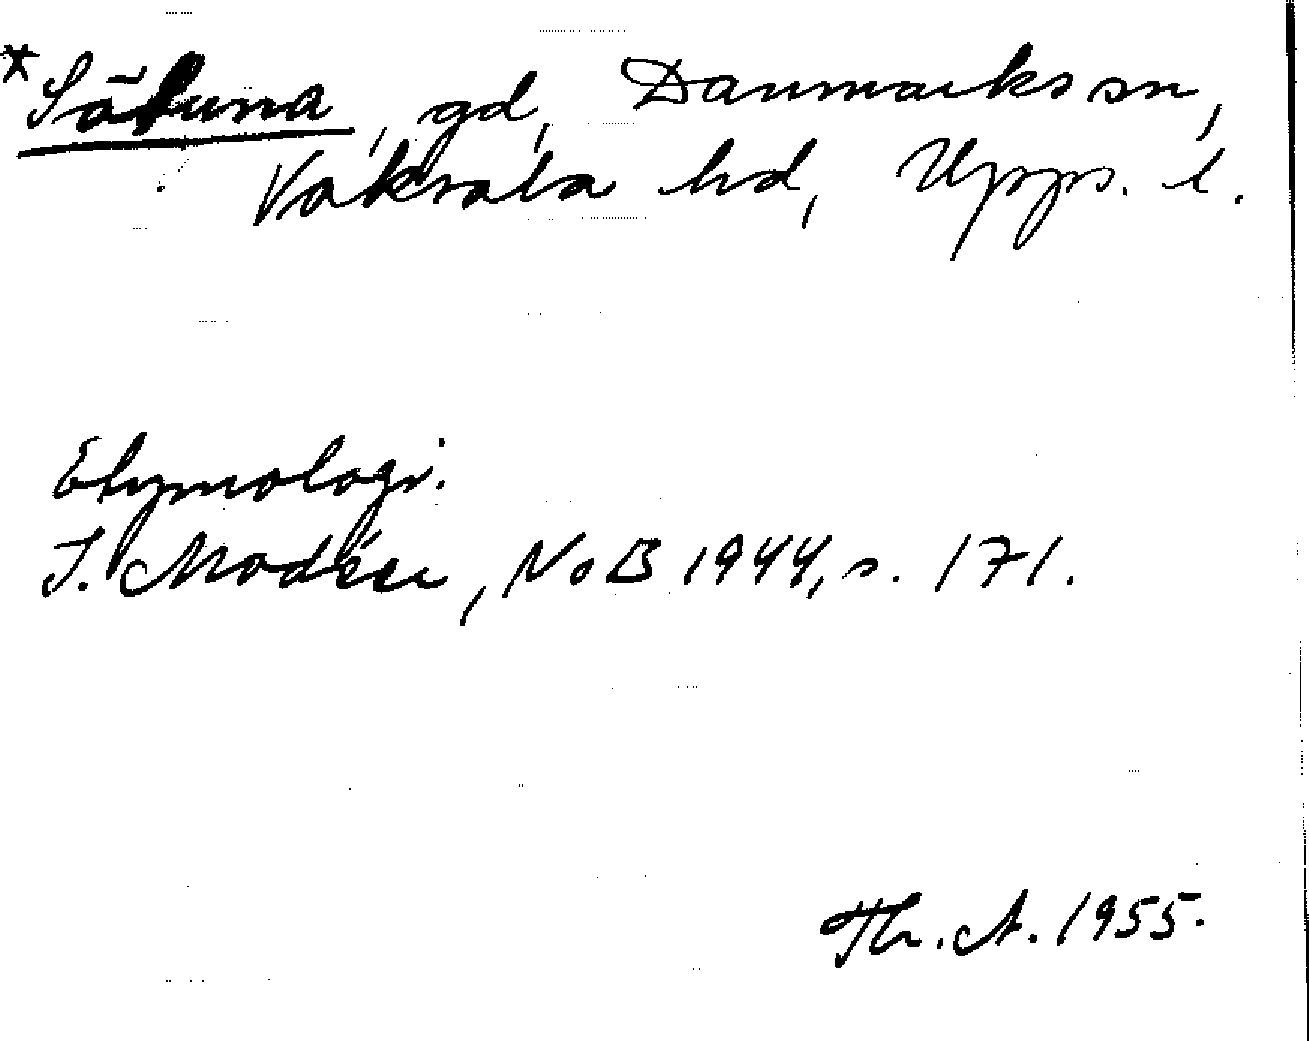 *Såtuna, gd, Danmarks sn,
Vaksala hd, Upps. l.
Etymologi.
I. Modéer, NoB 1944, s. 171.
Th. A. 1955.